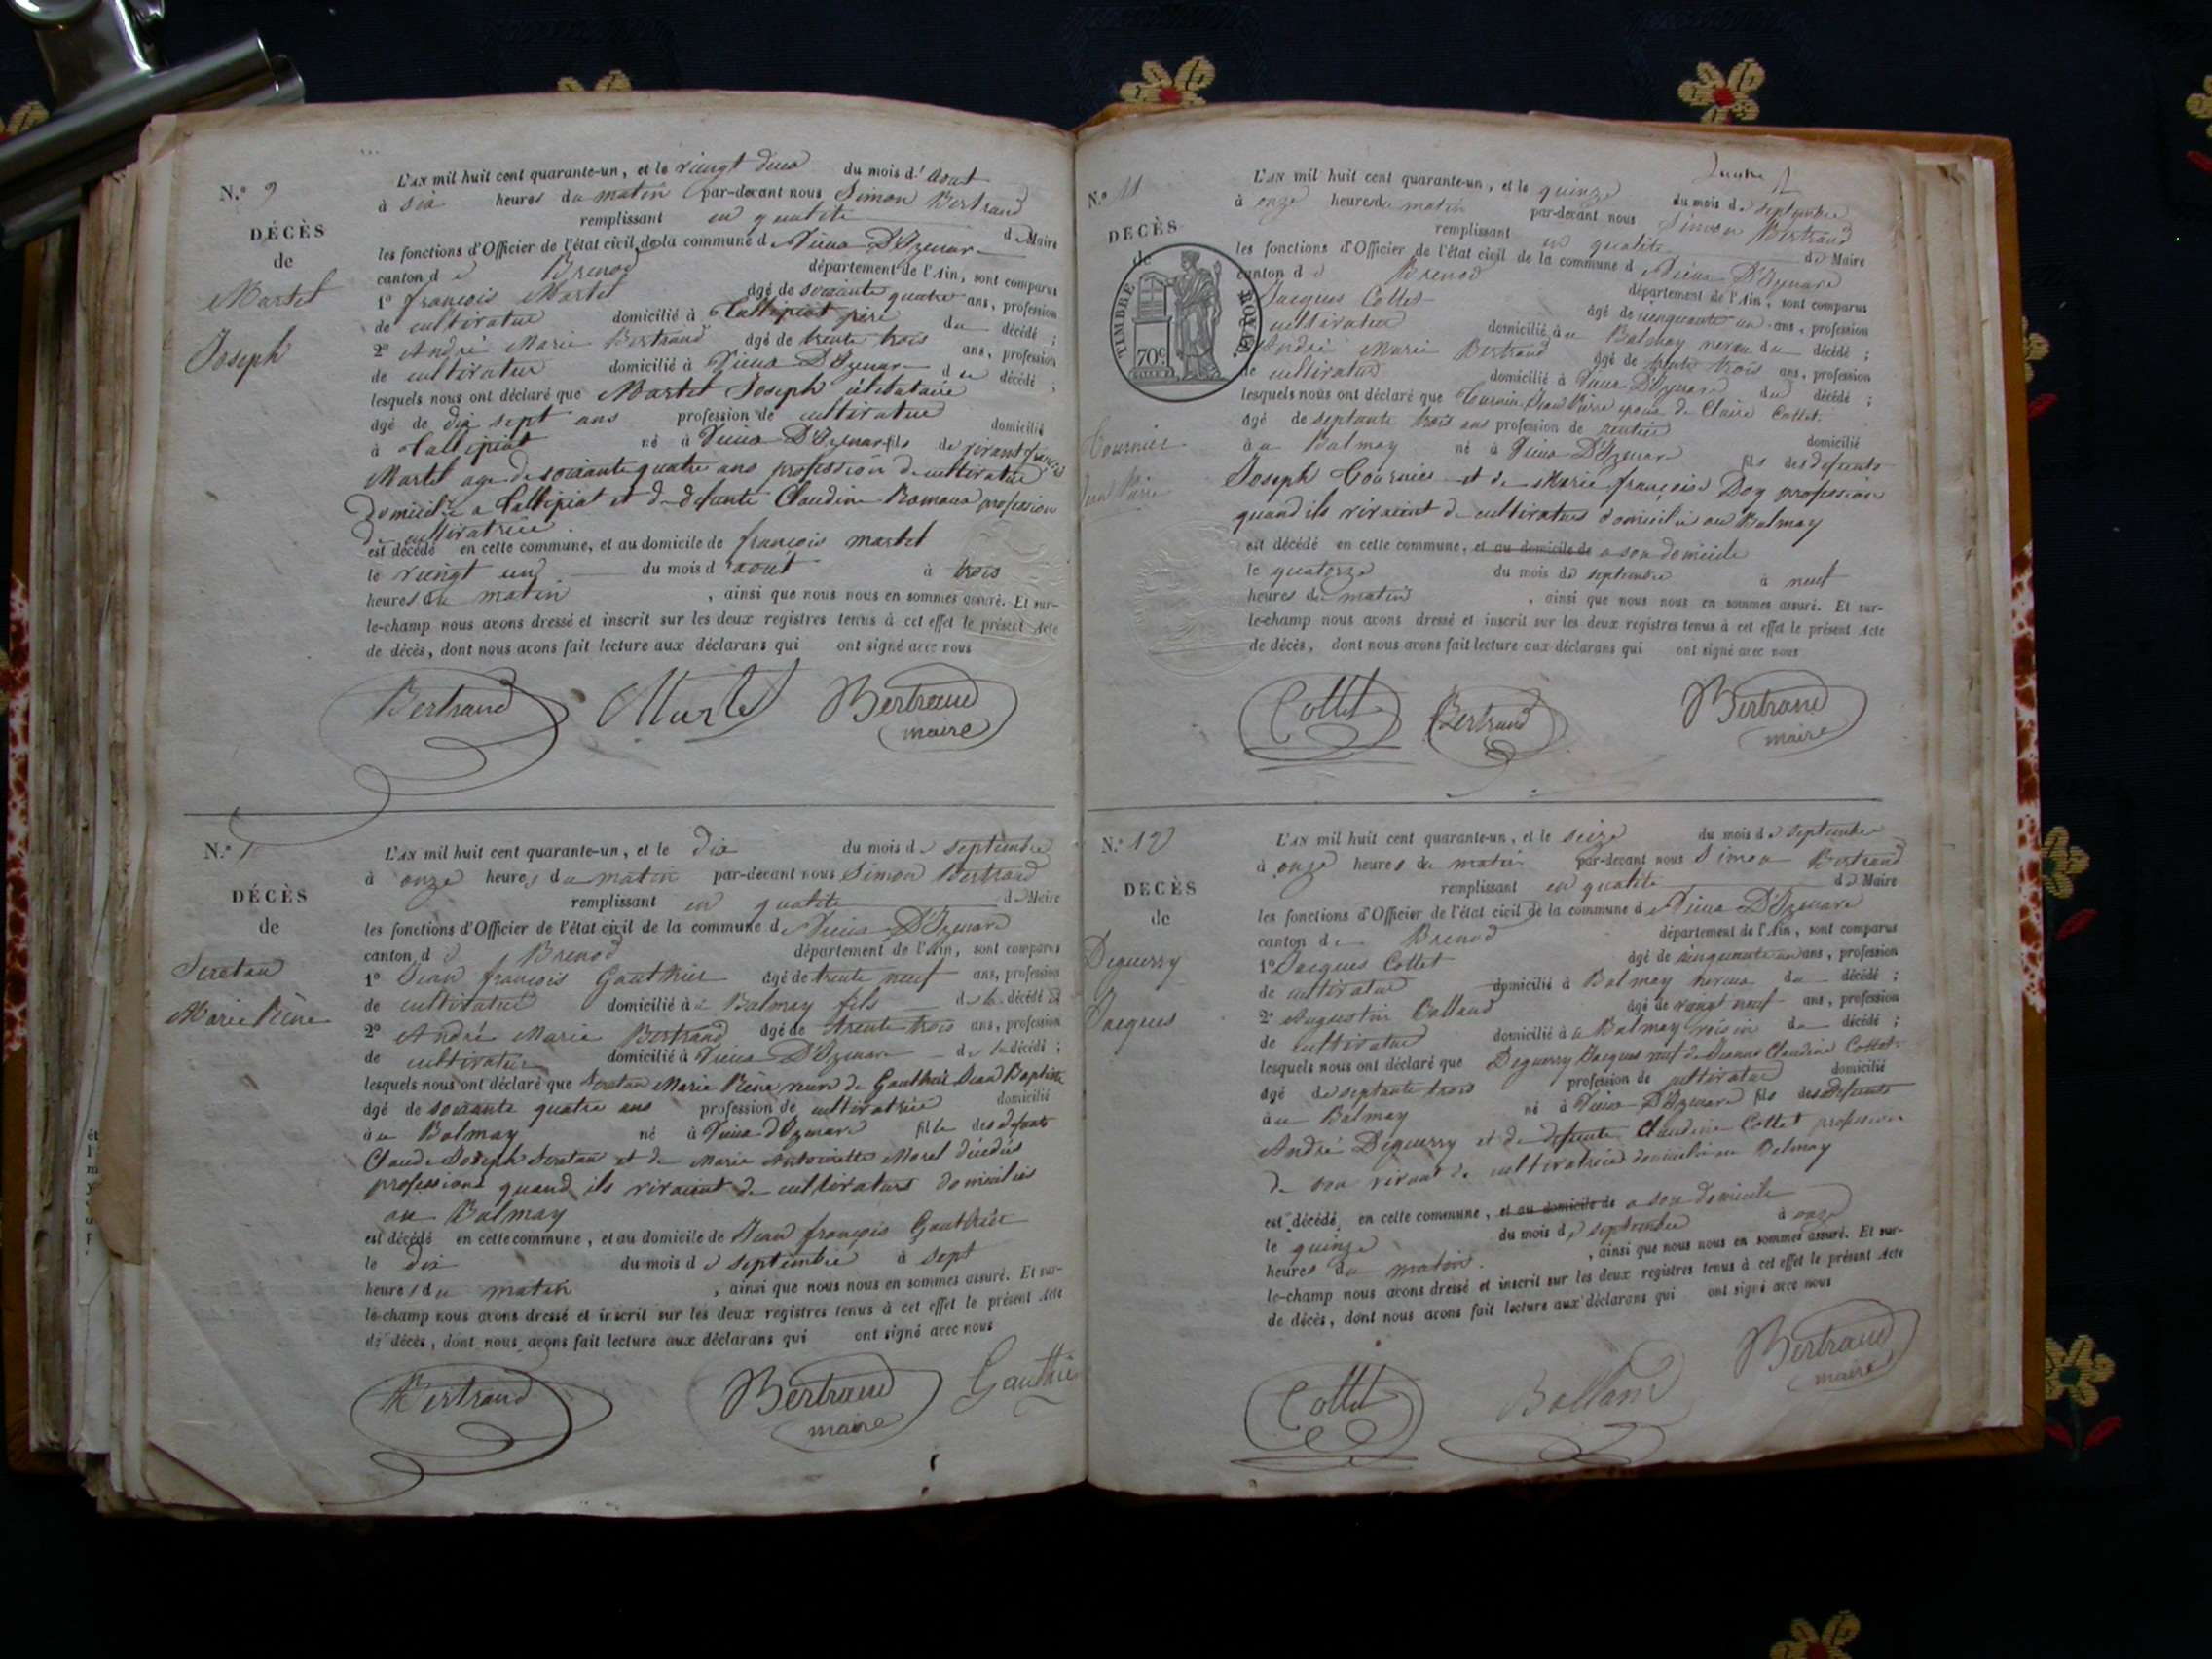 N.° 9
DÉCÈS
de
Martel
Joseph
L'AN mil huit cent quarante-un, et le vingt deux du mois d'Aout
à six heures du matin par-devant nous Simon Bertrand
remplissant en qualité de Maire
les fonctions d'Officier de l'état civil de la commune de Vieux D'Izenave
canton de Brenod département de l'Ain, sont comparus
1° françois Martel âgé de soixante quatre ans, profession
de cultivateur domicilié à Tallipiat père du décédé ;
2° André Marie Bertrand âgé de trente trois ans, profession
de cultivateur domicilié à Vieux D'Izenave du décédé ;
lesquels nous ont déclaré que Martel Joseph célibataire
âgé de dix sept ans profession de cultivateur domicilié
à Tallipiat né à Vieux D'Izenave fils de vivant françois
Martel age de soixante quatre ans profession de cultivateur
Domicilié a Tallipiat et de defunte Claudine profession
De cultivatrice
est décédé en cette commune, et au domicile de françois martel
le vingt un du mois d'aout à trois
heures du matin , ainsi que nous nous en sommes assuré. Et sur-
le-champ nous avons dressé et inscrit sur les deux registres tenus à cet effet le présent Acte
de décès, dont nous avons fait lecture aux déclarans qui ont signé avec nous
Bertrand Martel Bertrand
maire
N.° 1
DÉCÈS
de
Marie Pière
L'AN mil huit cent quarante-un, et le dix du mois de septembre
à onze heures du matin par-devant nous Simon Bertrand
remplissant en qualité de Maire
les fonctions d'Officier de l'état civil de la commune de Vieux D'Izenave
canton de Brenod département de l'Ain, sont comparus
1° Jean françois Gauthier âgé de trente neuf ans, profession
de cultivateur domicilié au Balmay fils de la décédé
2° André Marie Bertrand âgé de trente trois ans, profession
de cultivateur domicilié à Vieux D'Izenave de la décédé ;
lesquels nous ont déclaré que Marie Pière veuve de Gauthier Jean Baptiste
âgé de soixante quatre ans profession de cultivatrice domicilié
au Balmay né à Vieux d'Izenave fille des defunts
Claude Joseph et de Marie Antoinette Morel décédés
professions quand ils vivaient de cultivateurs domiciliés
au Balmay
est décédé en cette commune, et au domicile de Jean françois Gauthier
le dix du mois de septembre à sept
heures du matin , ainsi que nous nous en sommes assuré. Et sur-
le-champ nous avons dressé et inscrit sur les deux registres tenus à cet effet le présent Acte
de décès, dont nous avons fait lecture aux déclarans qui ont signé avec nous
Bertrand Bertrand Gauthier
maire
N.° 11
DÉCÈS
de
TIMBRE ROYAL
70c
Tournier
Jean Pierre
L'AN mil huit cent quarante-un, et le quinze du mois de septembre
à onze heures du matin par-devant nous Simon Bertrand
remplissant en qualité de Maire
les fonctions d'Officier de l'état civil de la commune de Vieux D'Izenave
canton de Brenod département de l'Ain, sont comparus
Jacques Collet âgé de cinquante un ans, profession
cultivateur domicilié au Balmay neveu du décédé ;
André Marie Bertrand âgé de trente trois ans, profession
de cultivateur domicilié à Vieux D'Izenave du décédé ;
lesquels nous ont déclaré que Tournier Jean Pierre epoux de Claire Collet
âgé de septante trois ans profession de rentier domicilié
au Balmay né à Vieux D'Izenave fils des defunts
Joseph Tournier et de Marie françoise Doy profession
quand ils vivaient de cultivateurs domicilié au Balmay
est décédé en cette commune, et au domicile de a son domicile
le quatorze du mois de septembre à neuf
heures du matin , ainsi que nous nous en sommes assuré. Et sur-
le-champ nous avons dressé et inscrit sur les deux registres tenus à cet effet le présent Acte
de décès, dont nous avons fait lecture aux déclarans qui ont signé avec nous
Collet Bertrand Bertrand
maire
N.° 12
DÉCÈS
de
Deguerry
Jacques
L'AN mil huit cent quarante-un, et le seize du mois de septembre
à onze heures du matin par-devant nous Simon Bertrand
remplissant en qualité de Maire
les fonctions d'Officier de l'état civil de la commune de Vieux D'Izenave
canton de Brenod département de l'Ain, sont comparus
1° Jacques Collet âgé de cinquante un ans, profession
de cultivateur domicilié à Balmay neveu du décédé ;
2° Augustin Balland âgé de vingt neuf ans, profession
de cultivateur domicilié à Balmay voisin du décédé ;
lesquels nous ont déclaré que Deguerry Jacques veuf de Jeanne Claudine Collet
âgé de septante trois profession de cultivateur domicilié
au Balmay né à Vieux D'Izenave fils des defunts
André Deguerry et de defunte Claudine Collet profession
de son vivant de cultivatrice domicilié au Balmay
est décédé en cette commune, et au domicile de a son domicile
le quinze du mois de septembre à onze
heures du matin. , ainsi que nous nous en sommes assuré. Et sur-
le-champ nous avons dressé et inscrit sur les deux registres tenus à cet effet le présent Acte
de décès, dont nous avons fait lecture aux déclarans qui ont signé avec nous
Collet Balland Bertrand
maire